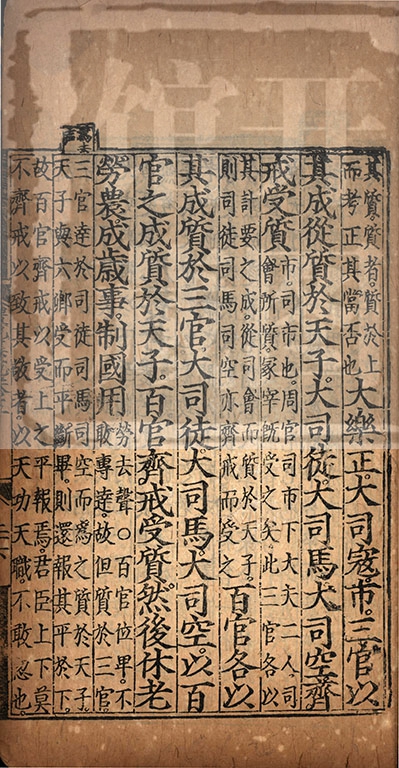 其質質者質於上
而考正其當否也
大樂正大司寇市三官以
其成從質於天子大司徒大司馬大司空齊
戒受質
市司市也周官司市下大夫二人司
會所質冢宰既受之矣此三官各以
其計要之成從司會而質於天子
則司徒司馬司空亦齊戒而受之
百官各以
其成質於三官大司徒大司馬大司空以百
官之成質於天子百官齊戒受質然後休老
勞農成歲事制國用
勞去聲○百官位卑不
敢專達故但質於三官
三官達於司徒司馬司空而為之質於天子
天子與六鄉受而平斷畢則還報其平於下
故百官齊戒以受上之平報焉君臣上下莫
不齊戒以致其敬者以天功天職不敢忽也